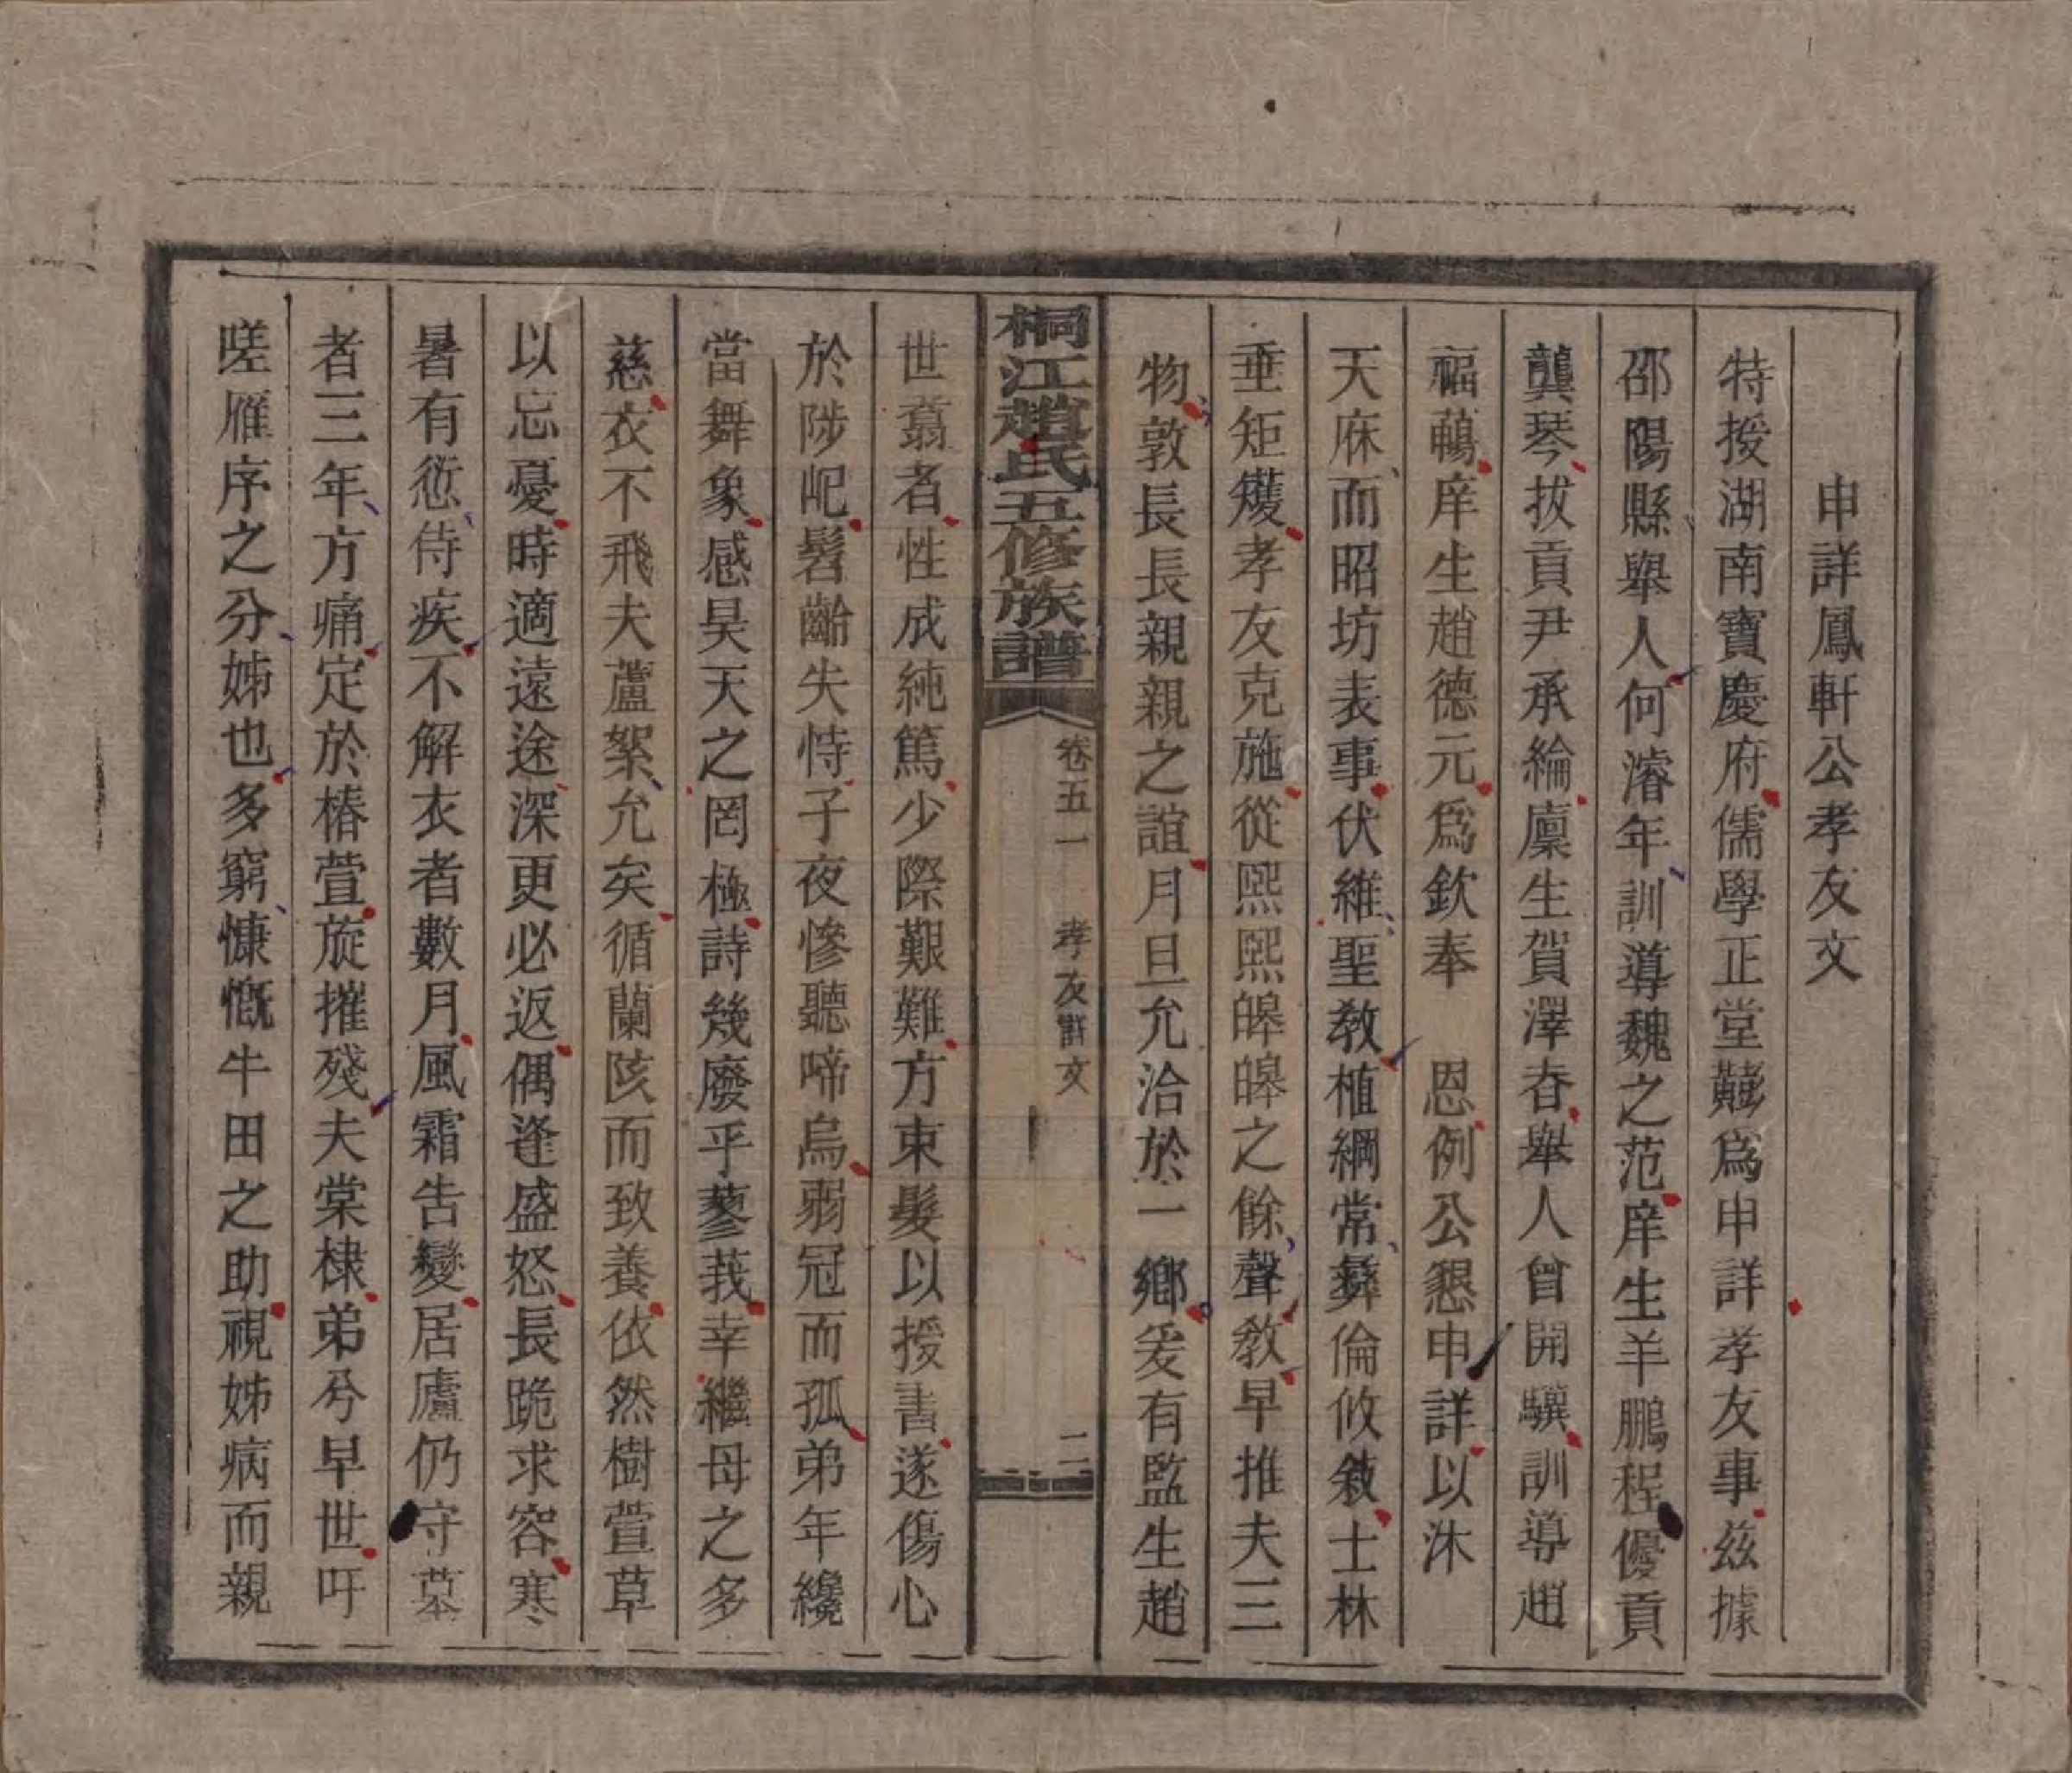 申詳鳳軒公孝友文
特授湖南寶慶府儒學正堂龔為申詳孝友事兹據
邵陽縣舉人何濬年訓導魏之范庠生羊鵬程優貢
龔琴拔貢尹承綸廩生賀澤春舉人曾開驥訓導趙
福鶡庠生趙德元爲欽奉　恩例公懇申詳以沐
天庥而昭坊表事伏維聖教植綱常彝倫攸敘士林
垂矩矱孝友克施從熙熙皞皞之餘聲教早推夫三
物敦長長親親之誼月旦允洽於一鄉爰有監生趙
桐江趙氏五修族譜　卷五一　孝友詳文　二
世翥者性成純篤少際艱難方束髮以授書遂傷心
於陟屺髫齡失恃子夜慘聽啼烏弱冠而孤弟年纔
當舞象感昊天之罔極詩幾廢乎蓼莪幸繼母之多
慈衣不飛夫蘆絮允矣循蘭陔而致養依然樹萱草
以忘憂時適遠途深更必返偶逢盛怒長跪求容寒
暑有愆侍疾不解衣者數月風霜告變居廬仍守墓
者三年方痛定於椿萱旋摧殘夫棠棣弟兮早世吁
嗟雁序之分姊也多窮慷慨牛田之助視姊病而親